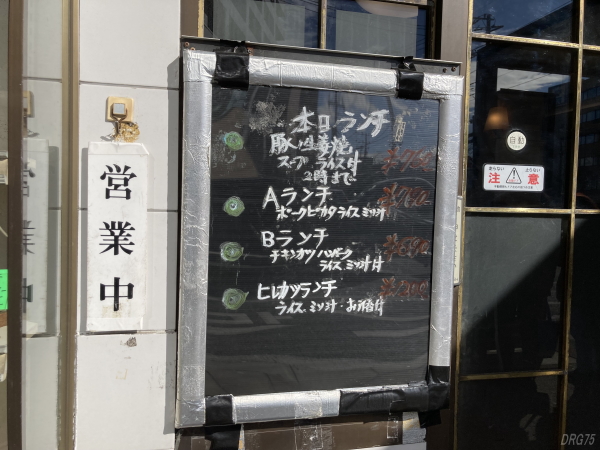 営業中
本日ランチ
豚生姜焼
スープ ライス付
2時まで
Aランチ
ポークピカタ ライス ミソ汁
Bランチ
チキンカツ ハンバーグ
ライス ミソ汁付
ヒレカツランチ
ライス・ミソ汁・お新香付
自動
注 意
DRG75